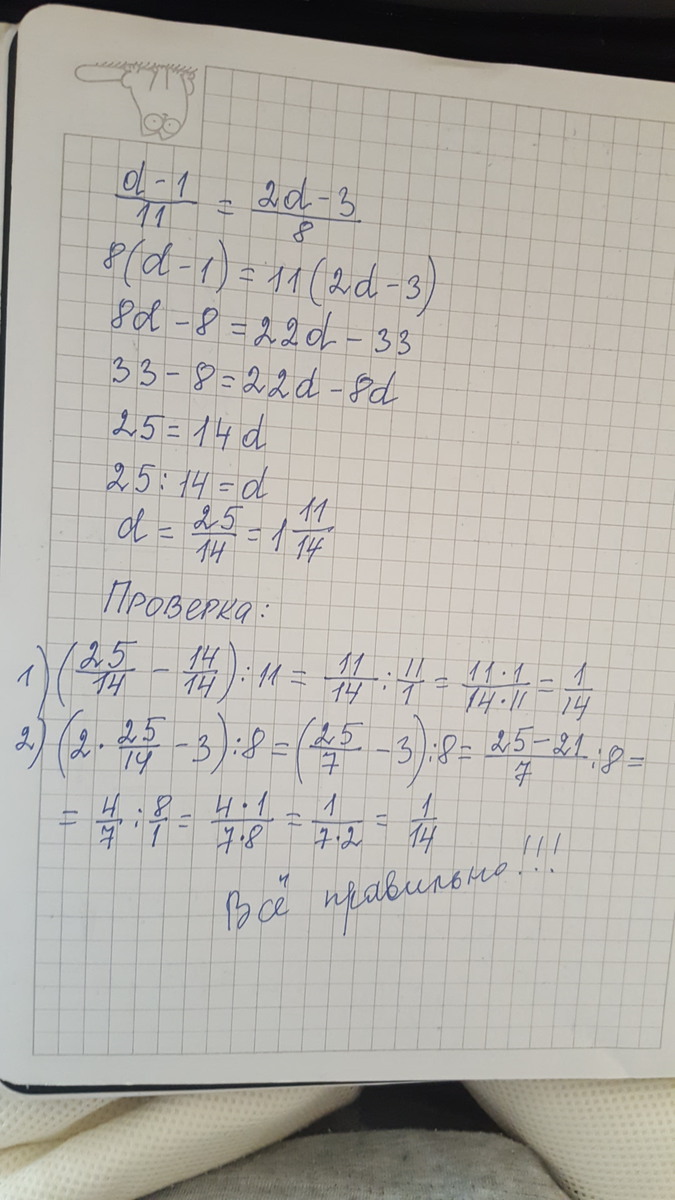 d - 1 / 11 = 2d - 3 / 8
8(d - 1) = 11(2d - 3)
8d - 8 = 22d - 33
33 - 8 = 22d - 8d
25 = 14d
25 : 14 = d
d = 25/14 = 1 11/14
Проверка:
1) (25/14 - 14/14) : 11 = 11/14 : 11/1 = 11·1/14·11 = 1/14
2) (2 · 25/14 - 3) : 8 = (25/7 - 3) : 8 = 25-21/7 : 8 =
= 4/7 : 8/1 = 4·1/7·8 = 1/7·2 = 1/14
Всё правильно!!!